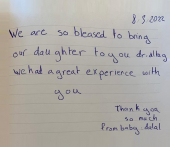 8.3.2022
We are so blessed to bring
our daughter to you dr.altag
we had a great experience with
you
Thank you
so much
From baby: dalal